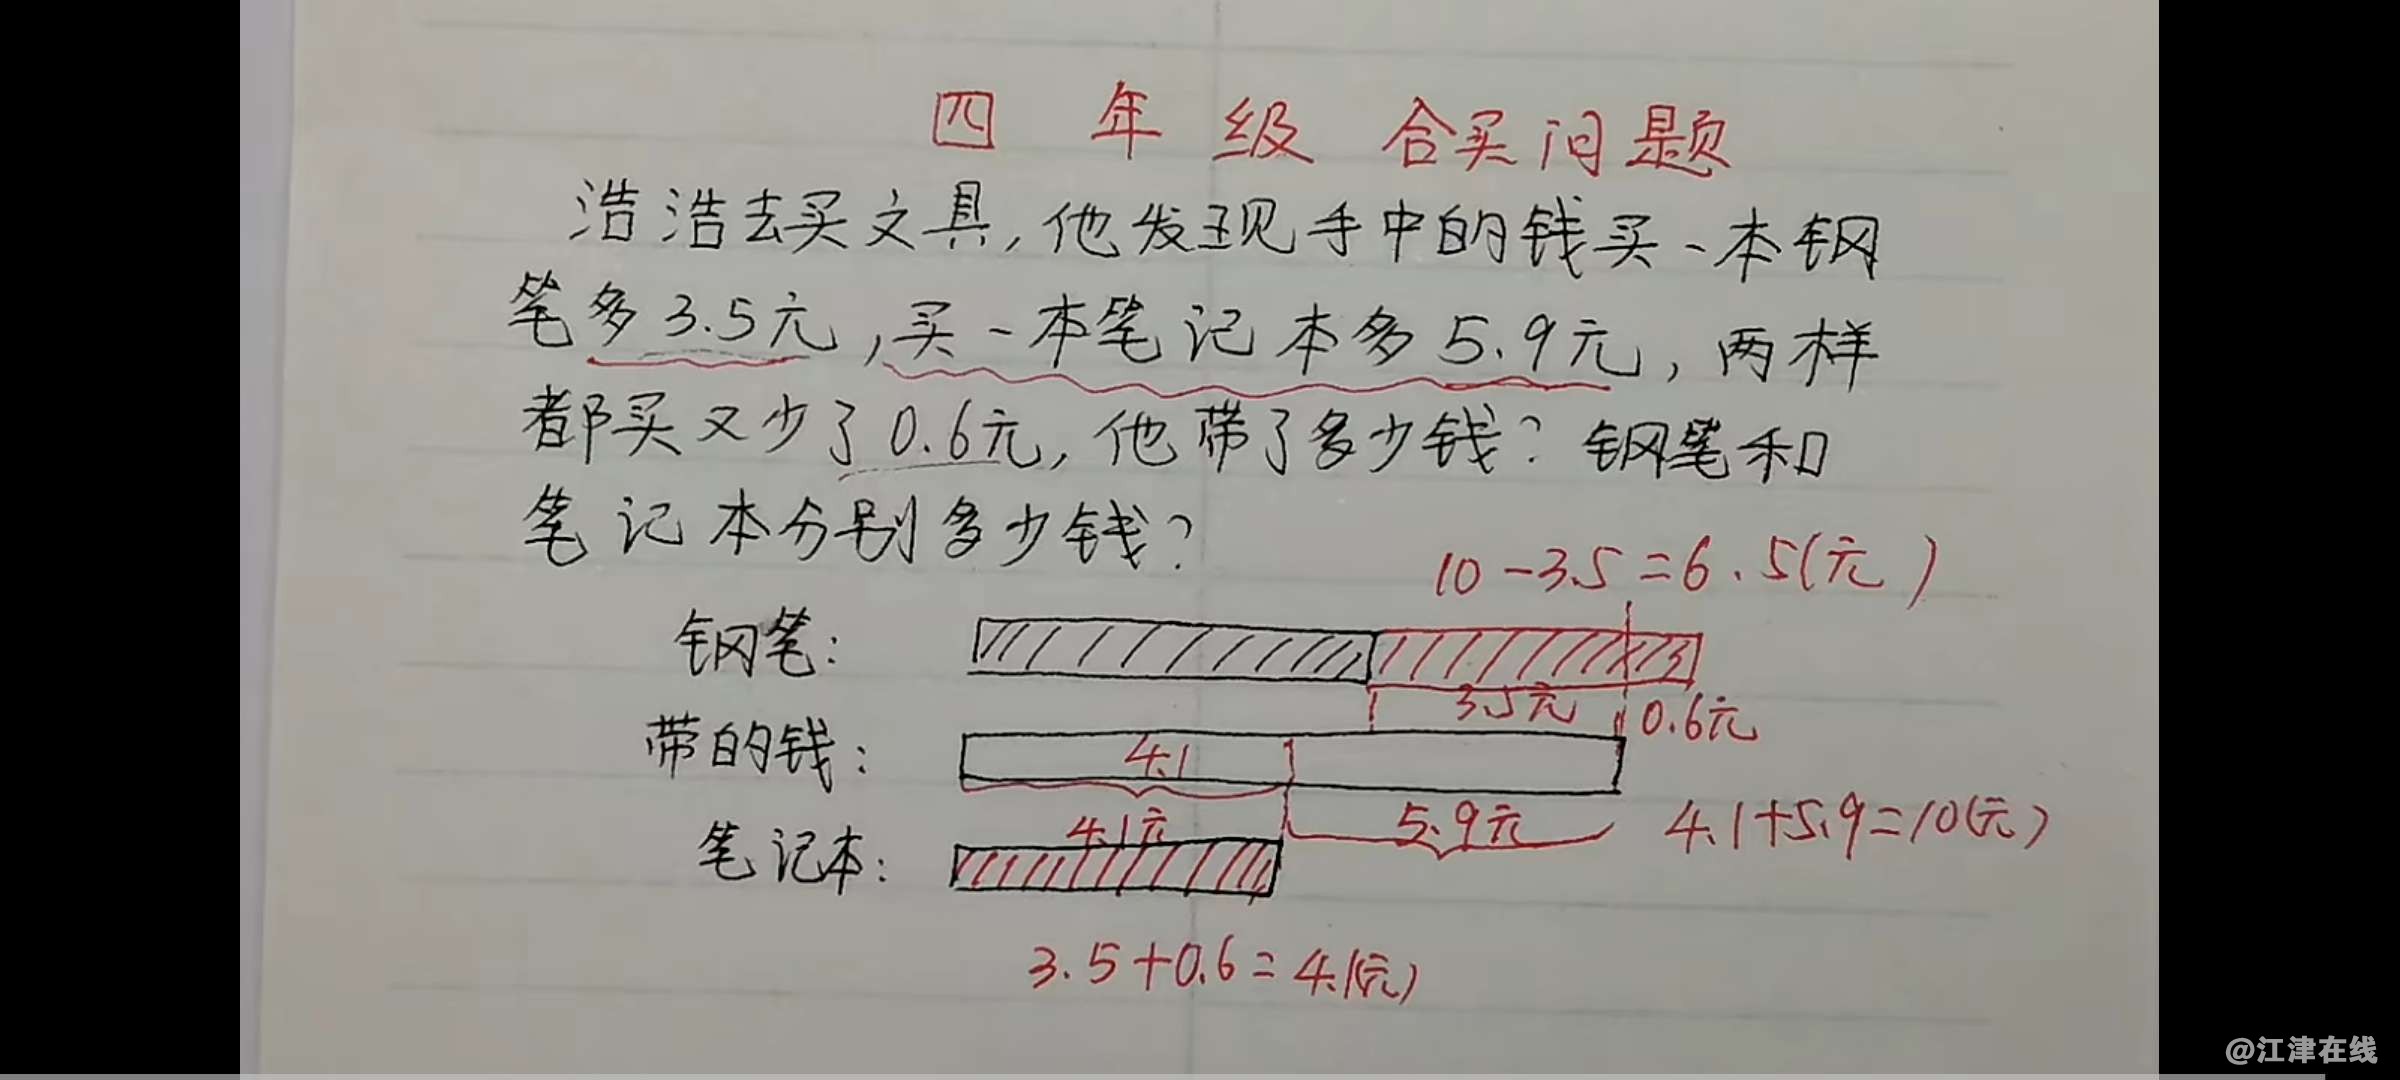 四年级 合买问题
浩浩去买文具,他发现手中的钱买一本钢
笔多3.5元,买一本笔记本多5.9元,两样
都买又少了0.6元,他带了多少钱?钢笔和
笔记本分别多少钱?
10-3.5=6.5(元)
钢笔:
3.5元
0.6元
带的钱:
4.1
4.1元
5.9元
4.1+5.9=10(元)
笔记本:
3.5+0.6=4.1(元)
@江津在线